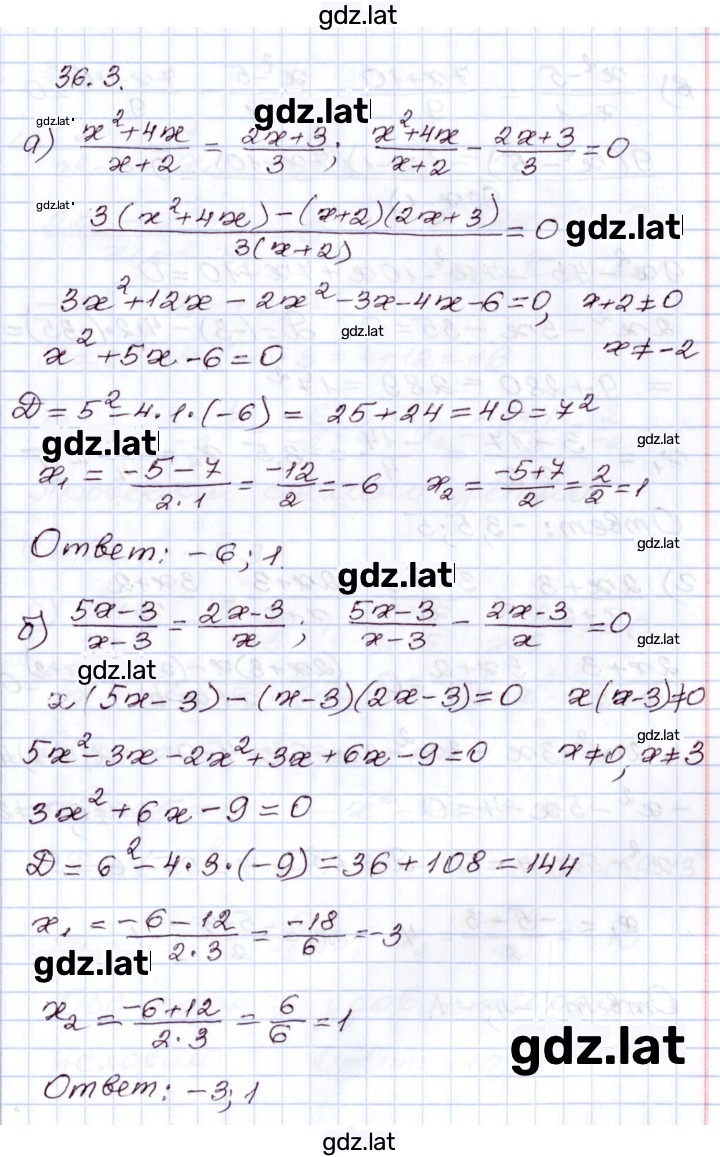 gdz.lat
36.3.
gdz.lat
gdz.lat
а) (x²+4x)/(x+2) = (2x+3)/3; (x²+4x)/(x+2) - (2x+3)/3 = 0
gdz.lat
(3(x²+4x)-(x+2)(2x+3))/(3(x+2)) = 0 gdz.lat
3x²+12x-2x²-3x-4x-6=0, x+2≠0
gdz.lat
x²+5x-6=0 x≠-2
Д=5²-4·1·(-6)= 25+24=49=7²
gdz.lat gdz.lat
x₁ = (-5-7)/(2·1) = (-12)/2 = -6 x₂ = (-5+7)/2 = 2/2 = 1
Ответ: -6; 1.
gdz.lat
gdz.lat
б) (5x-3)/(x-3) = (2x-3)/x; (5x-3)/(x-3) - (2x-3)/x = 0
gdz.lat
gdz.lat
x(5x-3)-(x-3)(2x-3)=0 x(x-3)≠0
gdz.lat
5x²-3x-2x²+3x+6x-9=0 x≠0, x≠3
3x²+6x-9=0
Д=6²-4·3·(-9)=36+108=144
x₁ = (-6-12)/(2·3) = (-18)/6 = -3
gdz.lat
x₂ = (-6+12)/(2·3) = 6/6 = 1
gdz.lat
Ответ: -3; 1
gdz.lat